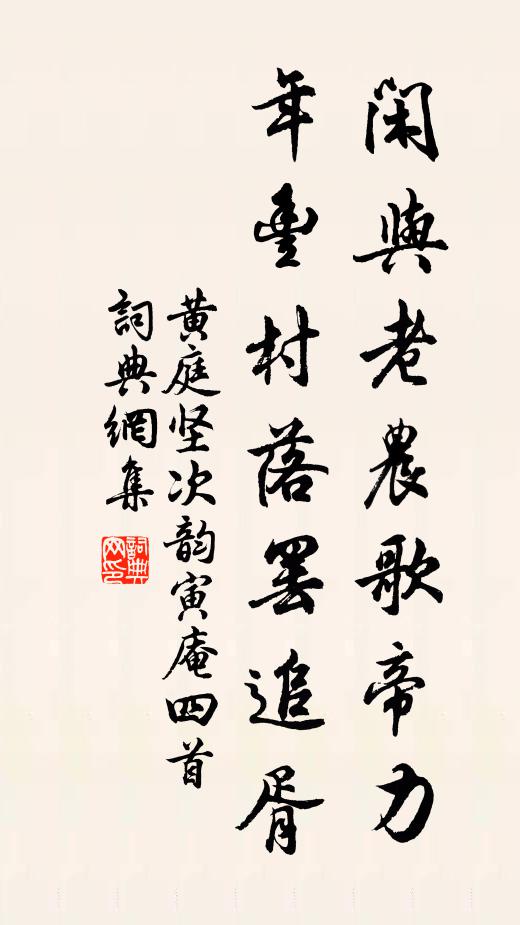 閑與老農歌帝力
年豐村落罷追胥
黄庭坚次韵寅庵四首
詞典網集
詞典网印